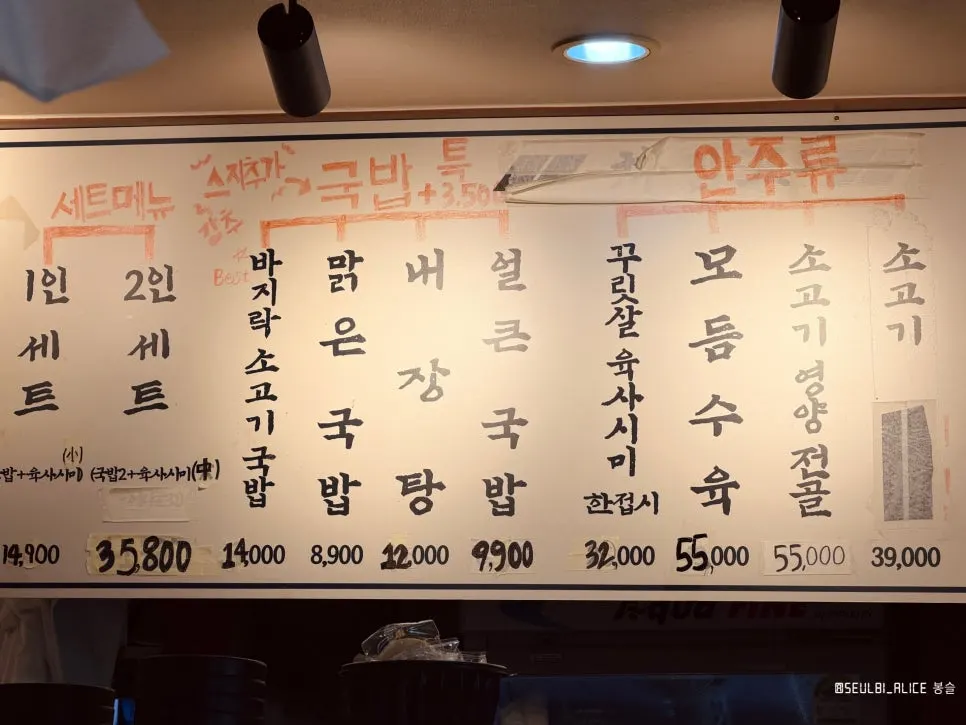 세트메뉴
스지추가
강추
국밥
특
+3,500
안주류
1인세트
(小)
밥+육사시미)
14,900
2인세트
(국밥2+육사시미(中)
35,800
Best
바지락소고기국밥
14,000
맑은국밥
8,900
내장탕
12,000
얼큰국밥
9,900
꾸릿살육사시미
한접시
32,000
모듬수육
55,000
소고기영양전골
55,000
소고기
39,000
@SEULBI_ALICE 봉슬